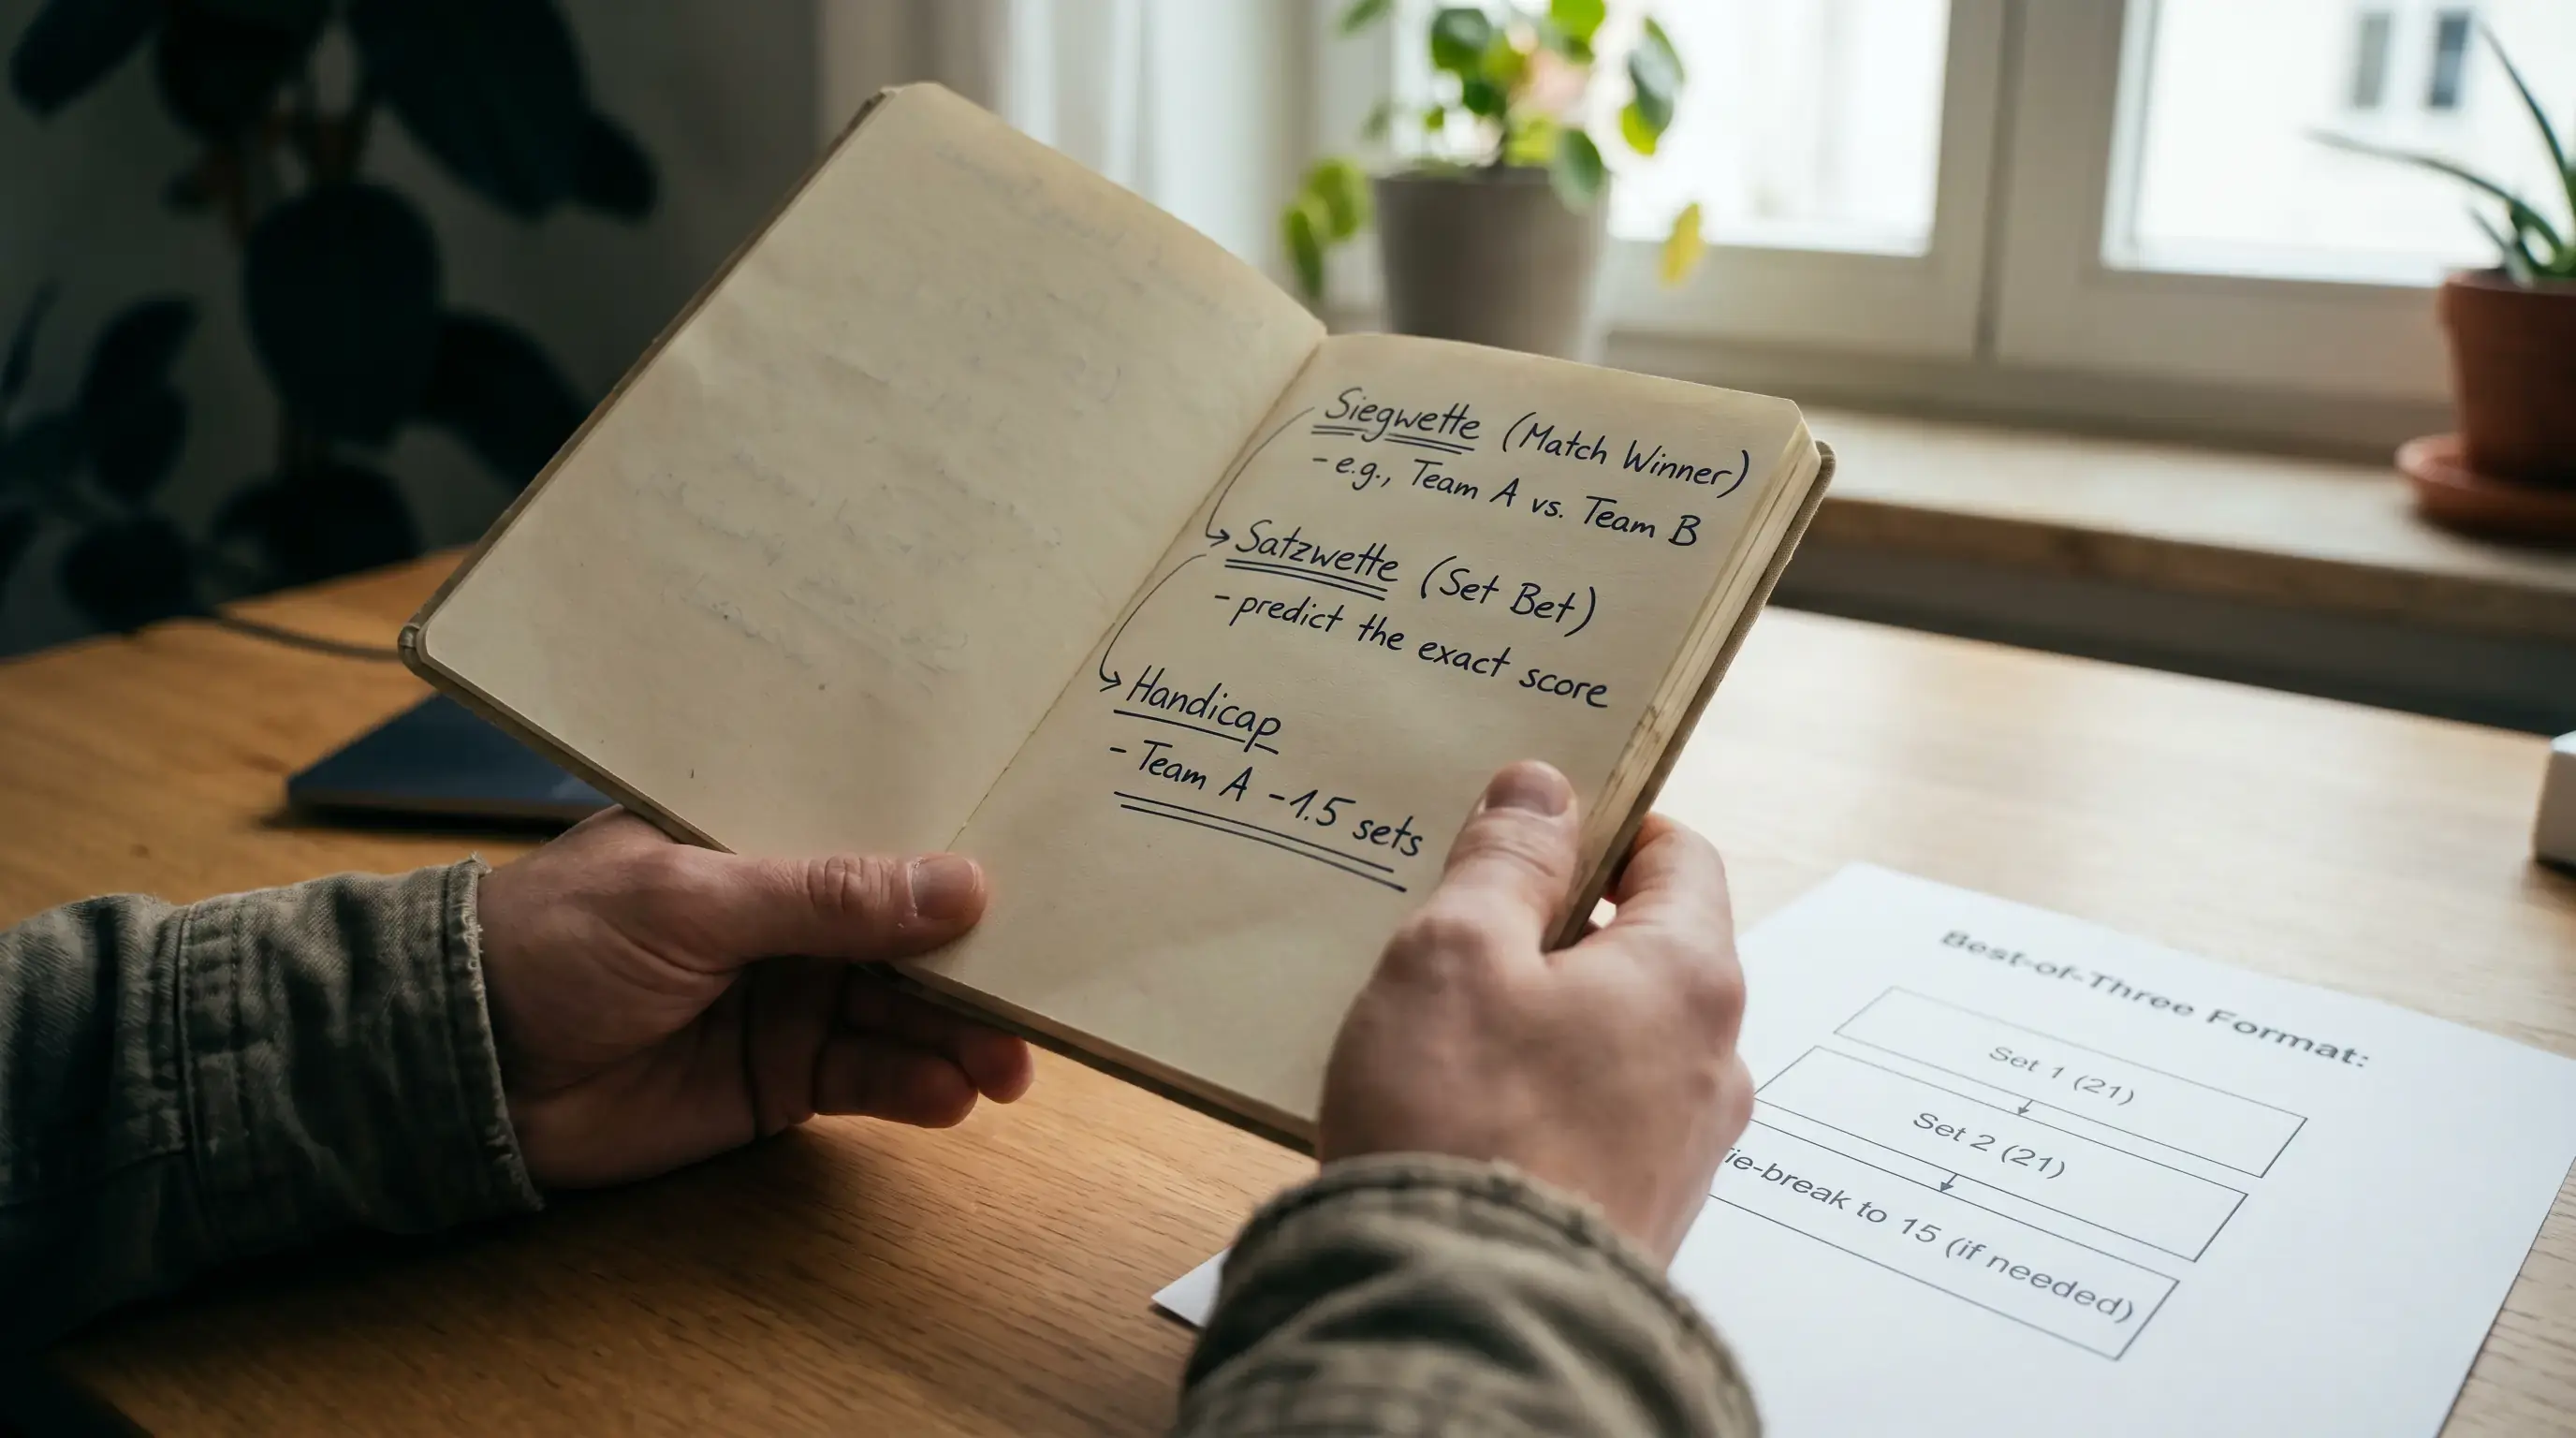 Siegwette (Match Winner)
- e.g., Team A vs. Team B
Satzwette (Set Bet)
- predict the exact score
Handicap
- Team A -1.5 sets
Best-of-Three Format:
Set 1 (21)
Set 2 (21)
ie-break to 15 (if needed)